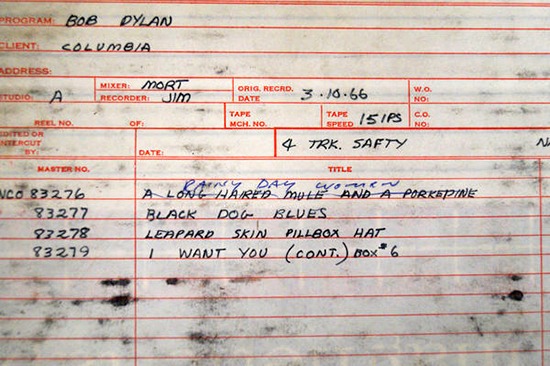 PROGRAM: BOB DYLAN
CLIENT: COLUMBIA
ADDRESS:
STUDIO: A
MIXER: MORT
RECORDER: JIM
ORIG. RECRD. DATE 3·10·66
W.O. NO:
REEL NO. OF:
TAPE MCH. NO.
TAPE SPEED 15 IPS
C.O. NO:
EDITED OR INTERCUT BY:
DATE:
4 TRK. SAFTY
MASTER NO. TITLE
RAINY DAY WOMEN
NCO 83276 A LONG HAIRED MULE AND A PORKEPINE
83277 BLACK DOG BLUES
83278 LEAPARD SKIN PILLBOX HAT
83279 I WANT YOU (CONT.) BOX #6